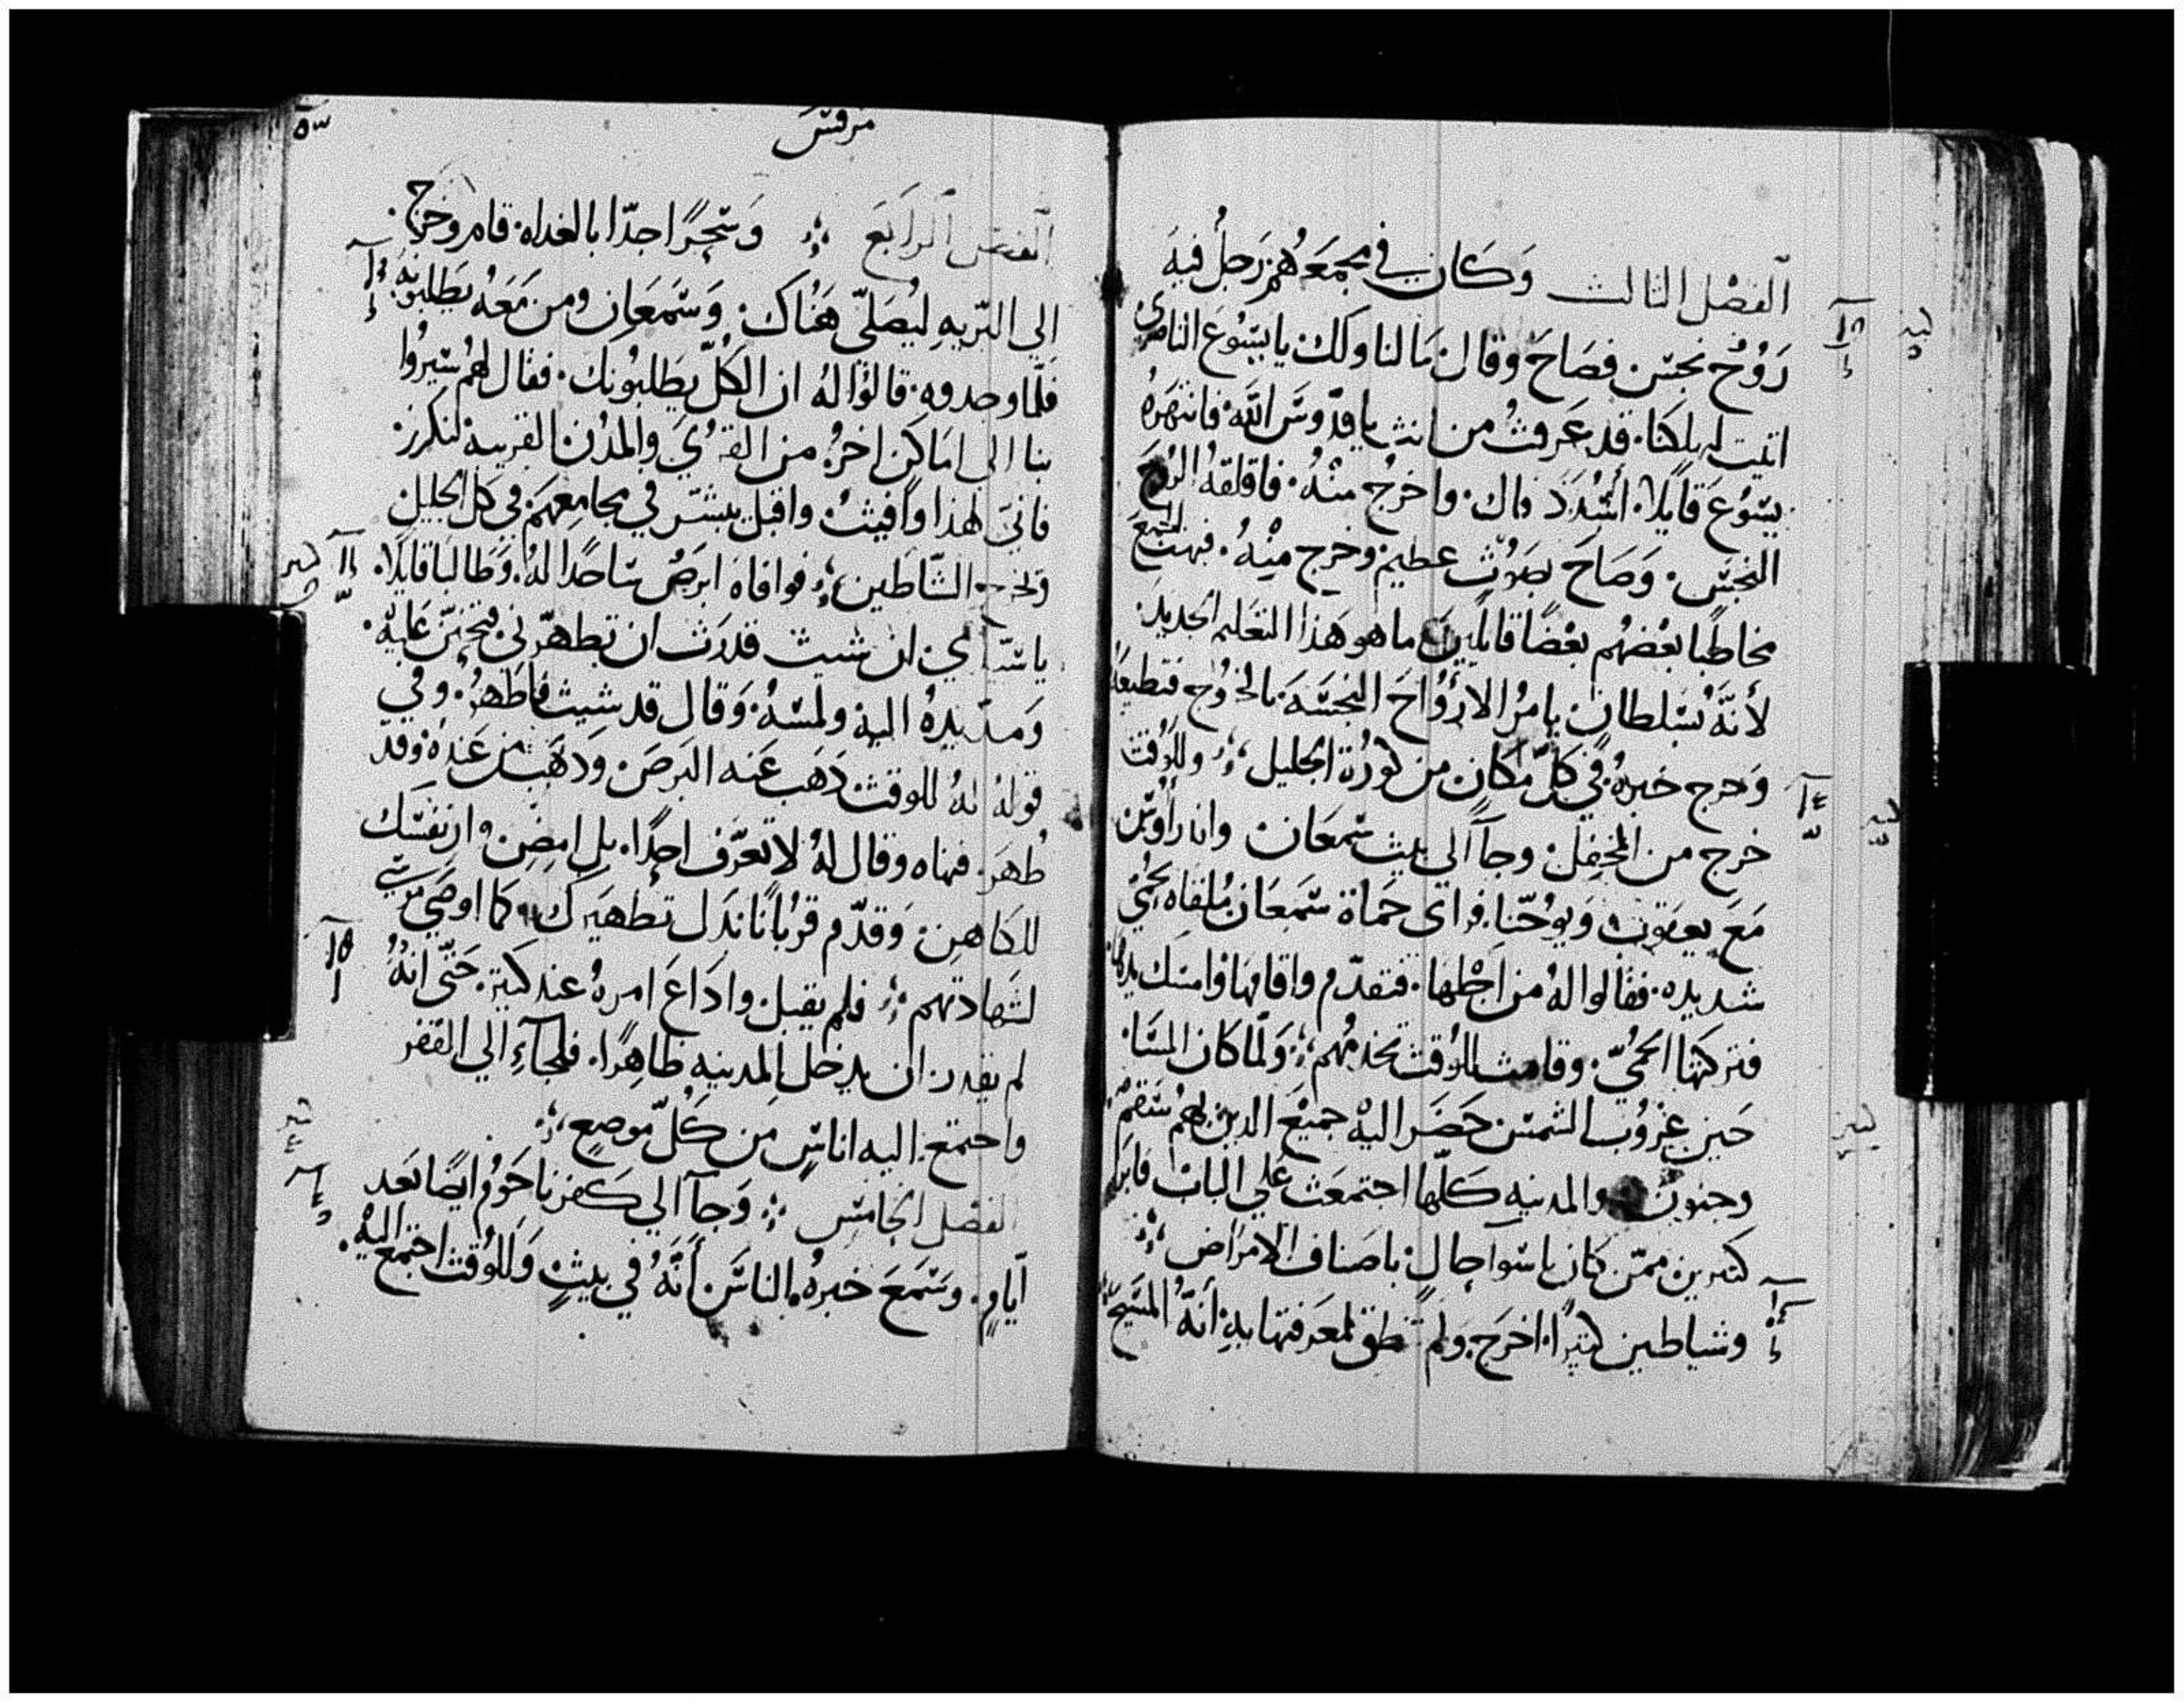 الفصْل الثالث وَكَان في مجمَعهُم رَجلُ فيهَ
رَوُحُ نجسْ. فصَاحَ وقال مَا لنا ولك يا يسُوعَ الناصري
اتيت لهلكنا. قد عَرفتُ من انت يا قدّوسَ اللّه. فانتهَرهُ
يسُوعَ قايلاً. اسُدَد فاك. واخرجُ منْهُ. فاقلقهُ الروحَ
النجسَ. وَصَاحَ بصَوُتٍ عظيم وخرج مِنْهُ. فبهت الجميعَ
مخاطبًا بعْضهُم بعْضًا قايلينَ ما هو هَذا التعَليم الجديدَ.
لأنهَّ بسَلطان يامرُ الارَوُاحَ النجسَه بالخرُوج فتطيعَه
وَخرج خبرهُ في كلّ مكان من كورُة الجليل ؛ وللوُقت
خرج من المحفِل وجآ الى بيت سْمعَان واندراوُسْ
مَعَ يعقوب وَيوُحّنا. فراى حَماة سَمعَان مُلقاه بحمُىّ
شديده. فقالوا لهُ من اجْلها. فتقدّم واقامهَا وُامسَك يدها.
فتركتهَا الحمُىّ. وقامت للوُقت تخدمُهم ؛ وَلما كان المسَا
حَين غرُوُب الشمسْ حَضَر اليْه جميعَ الدين بهمُ سَقمُ
وجنون والمدينه كلّها اجتمعَت على الباب فابرى
كثيرين ممّن كان باسَوآ حالٍ باصناف الامرَاض ؛
وشياطين كثيرًا. اخرَج. ولم تنطق لمعَرفتها بهِ أنهُ المسَيحَ
مرقسَ
٥٣
الفصل الرابَع ؛ وَسَحرًا جدّا بالغداه. قام وخرج.
الى البّريهِ ليُصَلىّ هَنُاك. وَسَمعَان ومن مَعَهُ يَطلبوُنهُ.
فلمّا وجدوه. قالوُا لهُ ان الكلّ يَطلبوُنك. فقال لهُم سَيروُا
بنا الى امَاكن اخرُ من القرُىَ والمدُن القريبة لنكرز.
فانىَ لهذا وافيتُ. واقبل يبشّر في مجامِعهمَ في كل الجليل
وتخرج الشّاطين ؛ فوافاهَ ابرَصُ سَاجدًا لهُ. وَطَالبا قايلاً.
يا سَيّدي. ان شيت قدرَت ان تطهرّني. فتحنن عَليه.
وَمدّ يدهُ اليه ولمسَهُ. وَقال قد شيت فاطَهرُ. وفي
قولهَ لهُ للوقت ذهَب عَنه البَرصَ. وَذهَبَ من عَنده وقد
طُهَر. فنهاه وقال لهُ لا تعَرّف احدًا. بل امضِ وار نفسَك
للكاهِن. وَقدّم قربُانًا بَدل تطهيَرك. كما اوصَى موسى
لشَهادتهم ؛ فلم يقبل. واذاعَ امرهُ عند كثيرة. حَتّى انهُ
لم يقدر ان يدخل المدينه ظاهِرًا. فلجآءِ الى القفر
واجتمَع اليه اناسٍ مَن كلّ موضعٍ ؛
الفصْل الخامسَ ؛ وَجآ الى كفرناحَوُم ايضًا بعَد
ايّامٍ. وسَمعَ خبرهُ. الناسَ أنَّهُ في بيتٍ وَللوُقت اجتمَعَ اليْه.